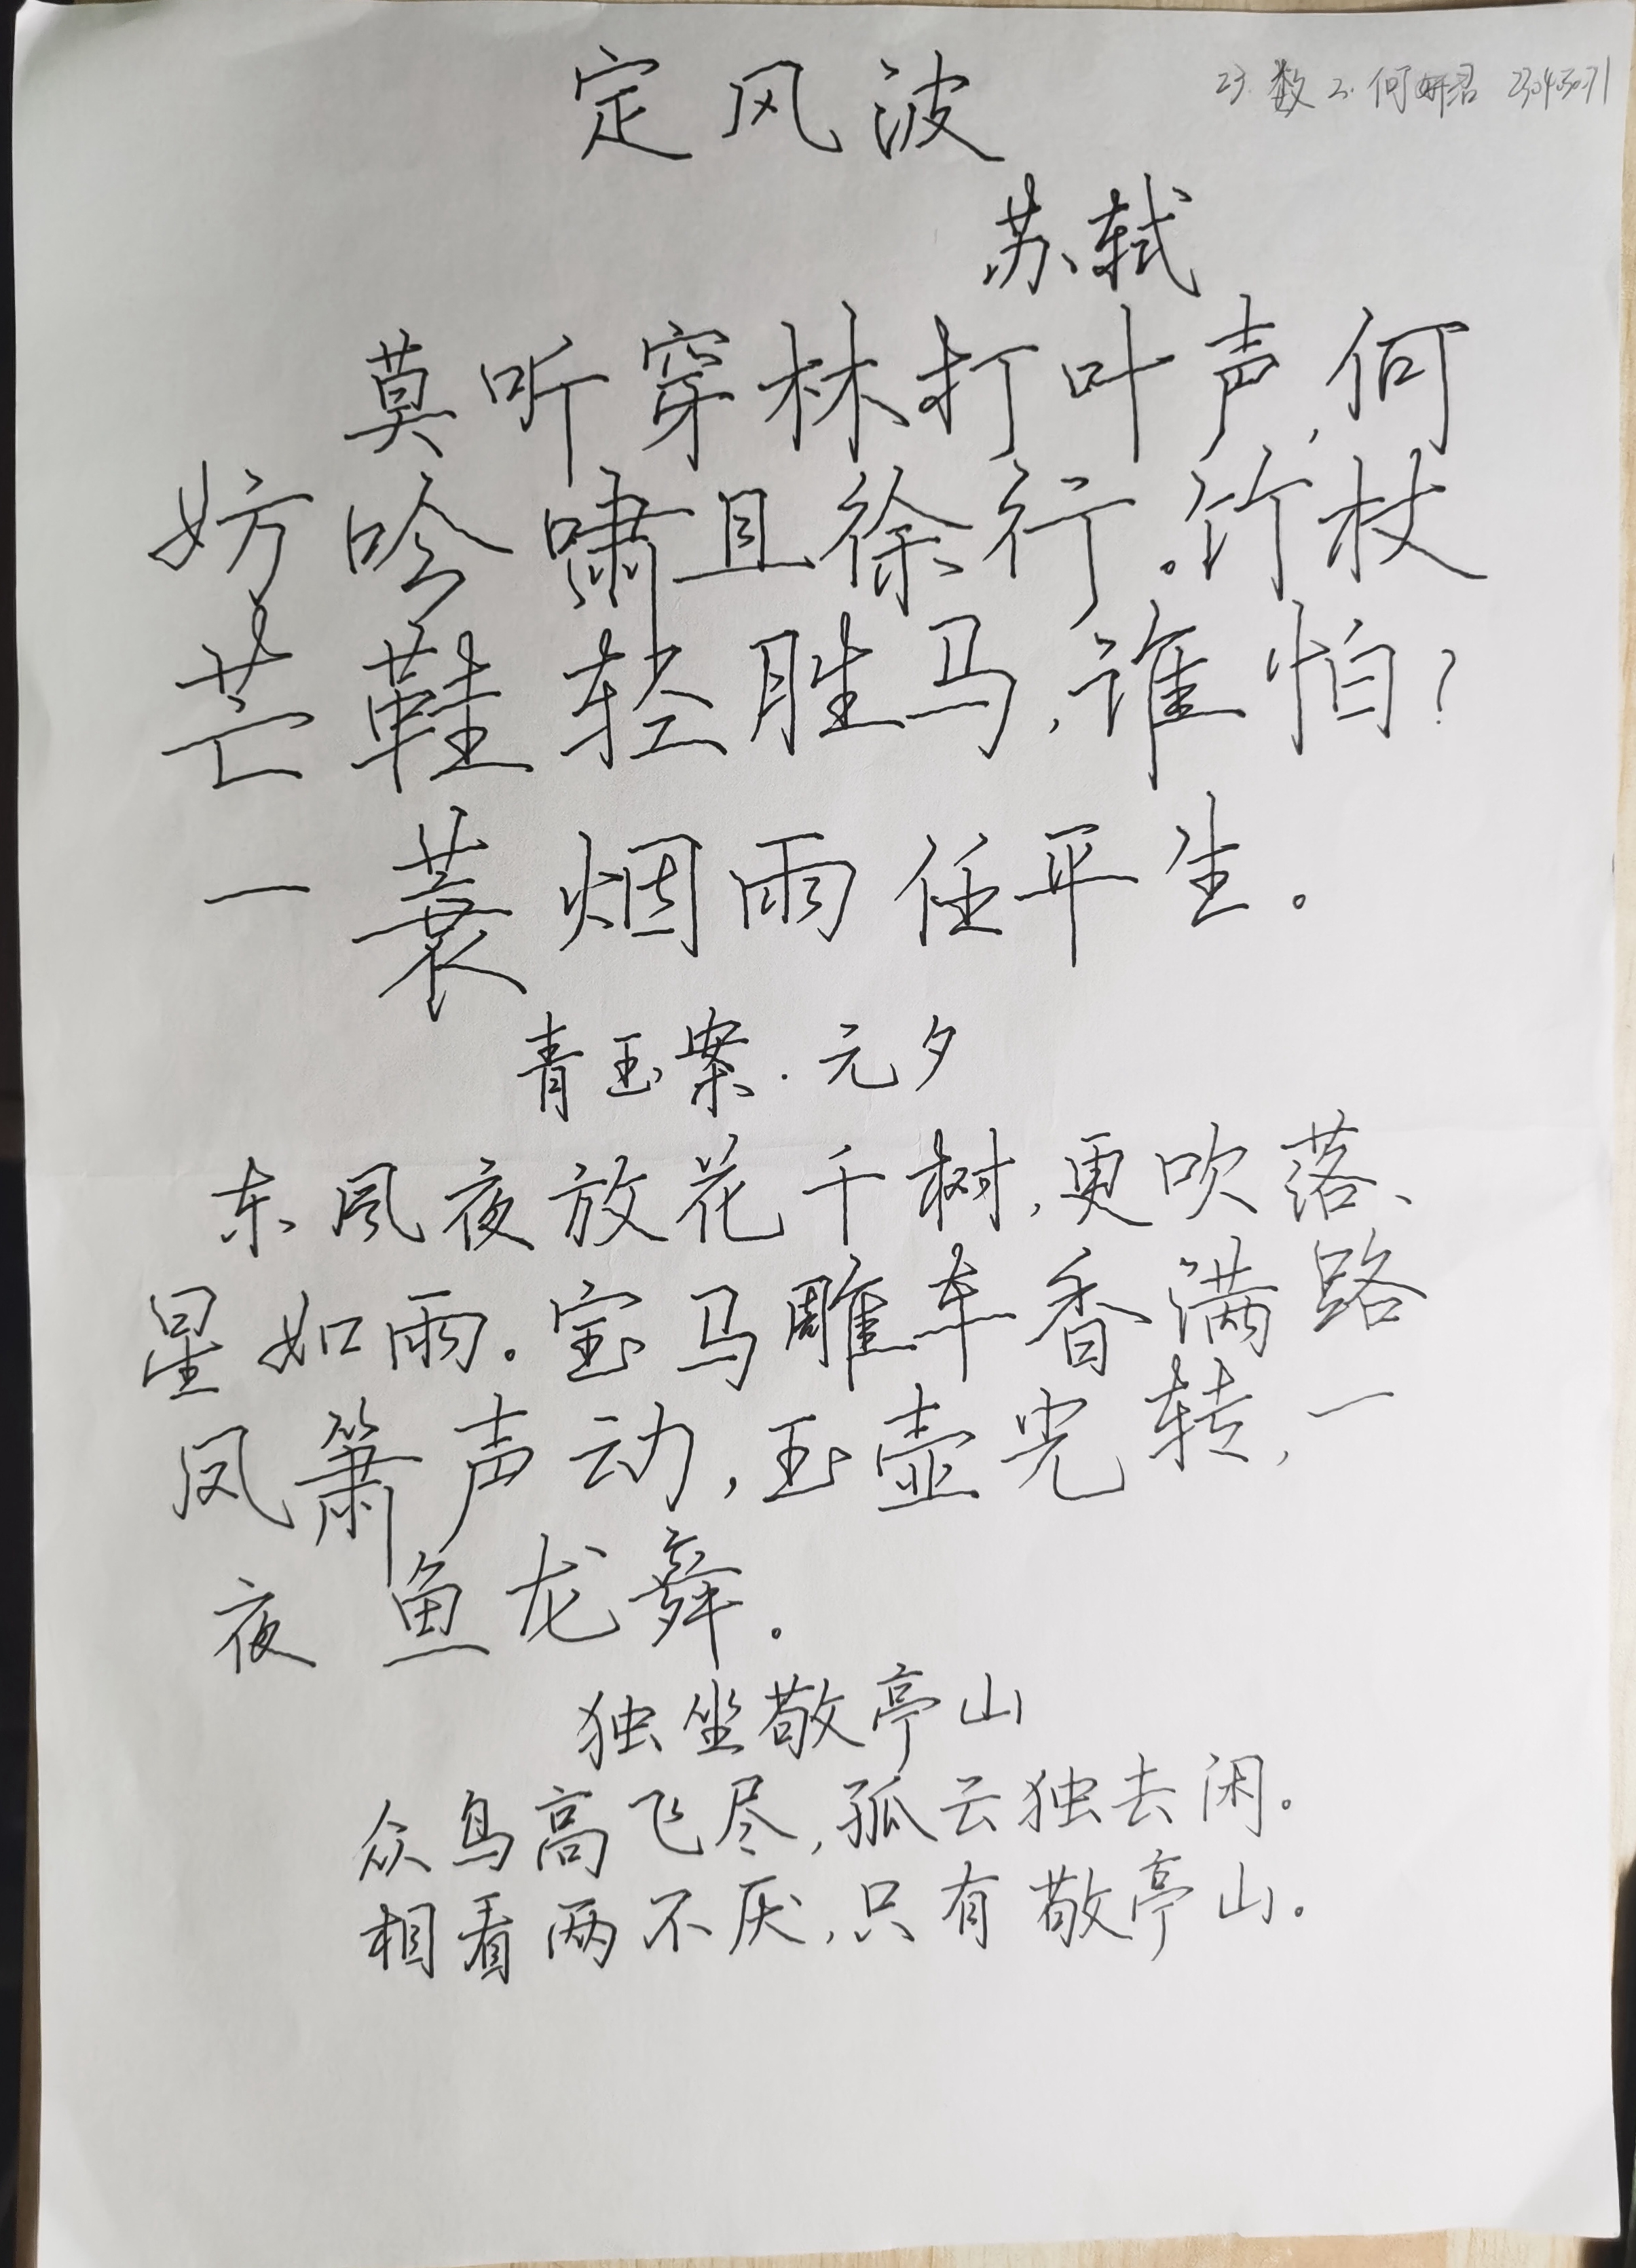 23 数2 何妍君
定风波
苏轼
莫听穿林打叶声,何
妨吟啸且徐行。竹杖
芒鞋轻胜马,谁怕?
一蓑烟雨任平生。
青玉案·元夕
东风夜放花千树,更吹落、
星如雨。宝马雕车香满路
凤箫声动,玉壶光转,一
夜鱼龙舞。
独坐敬亭山
众鸟高飞尽,孤云独去闲。
相看两不厌,只有敬亭山。